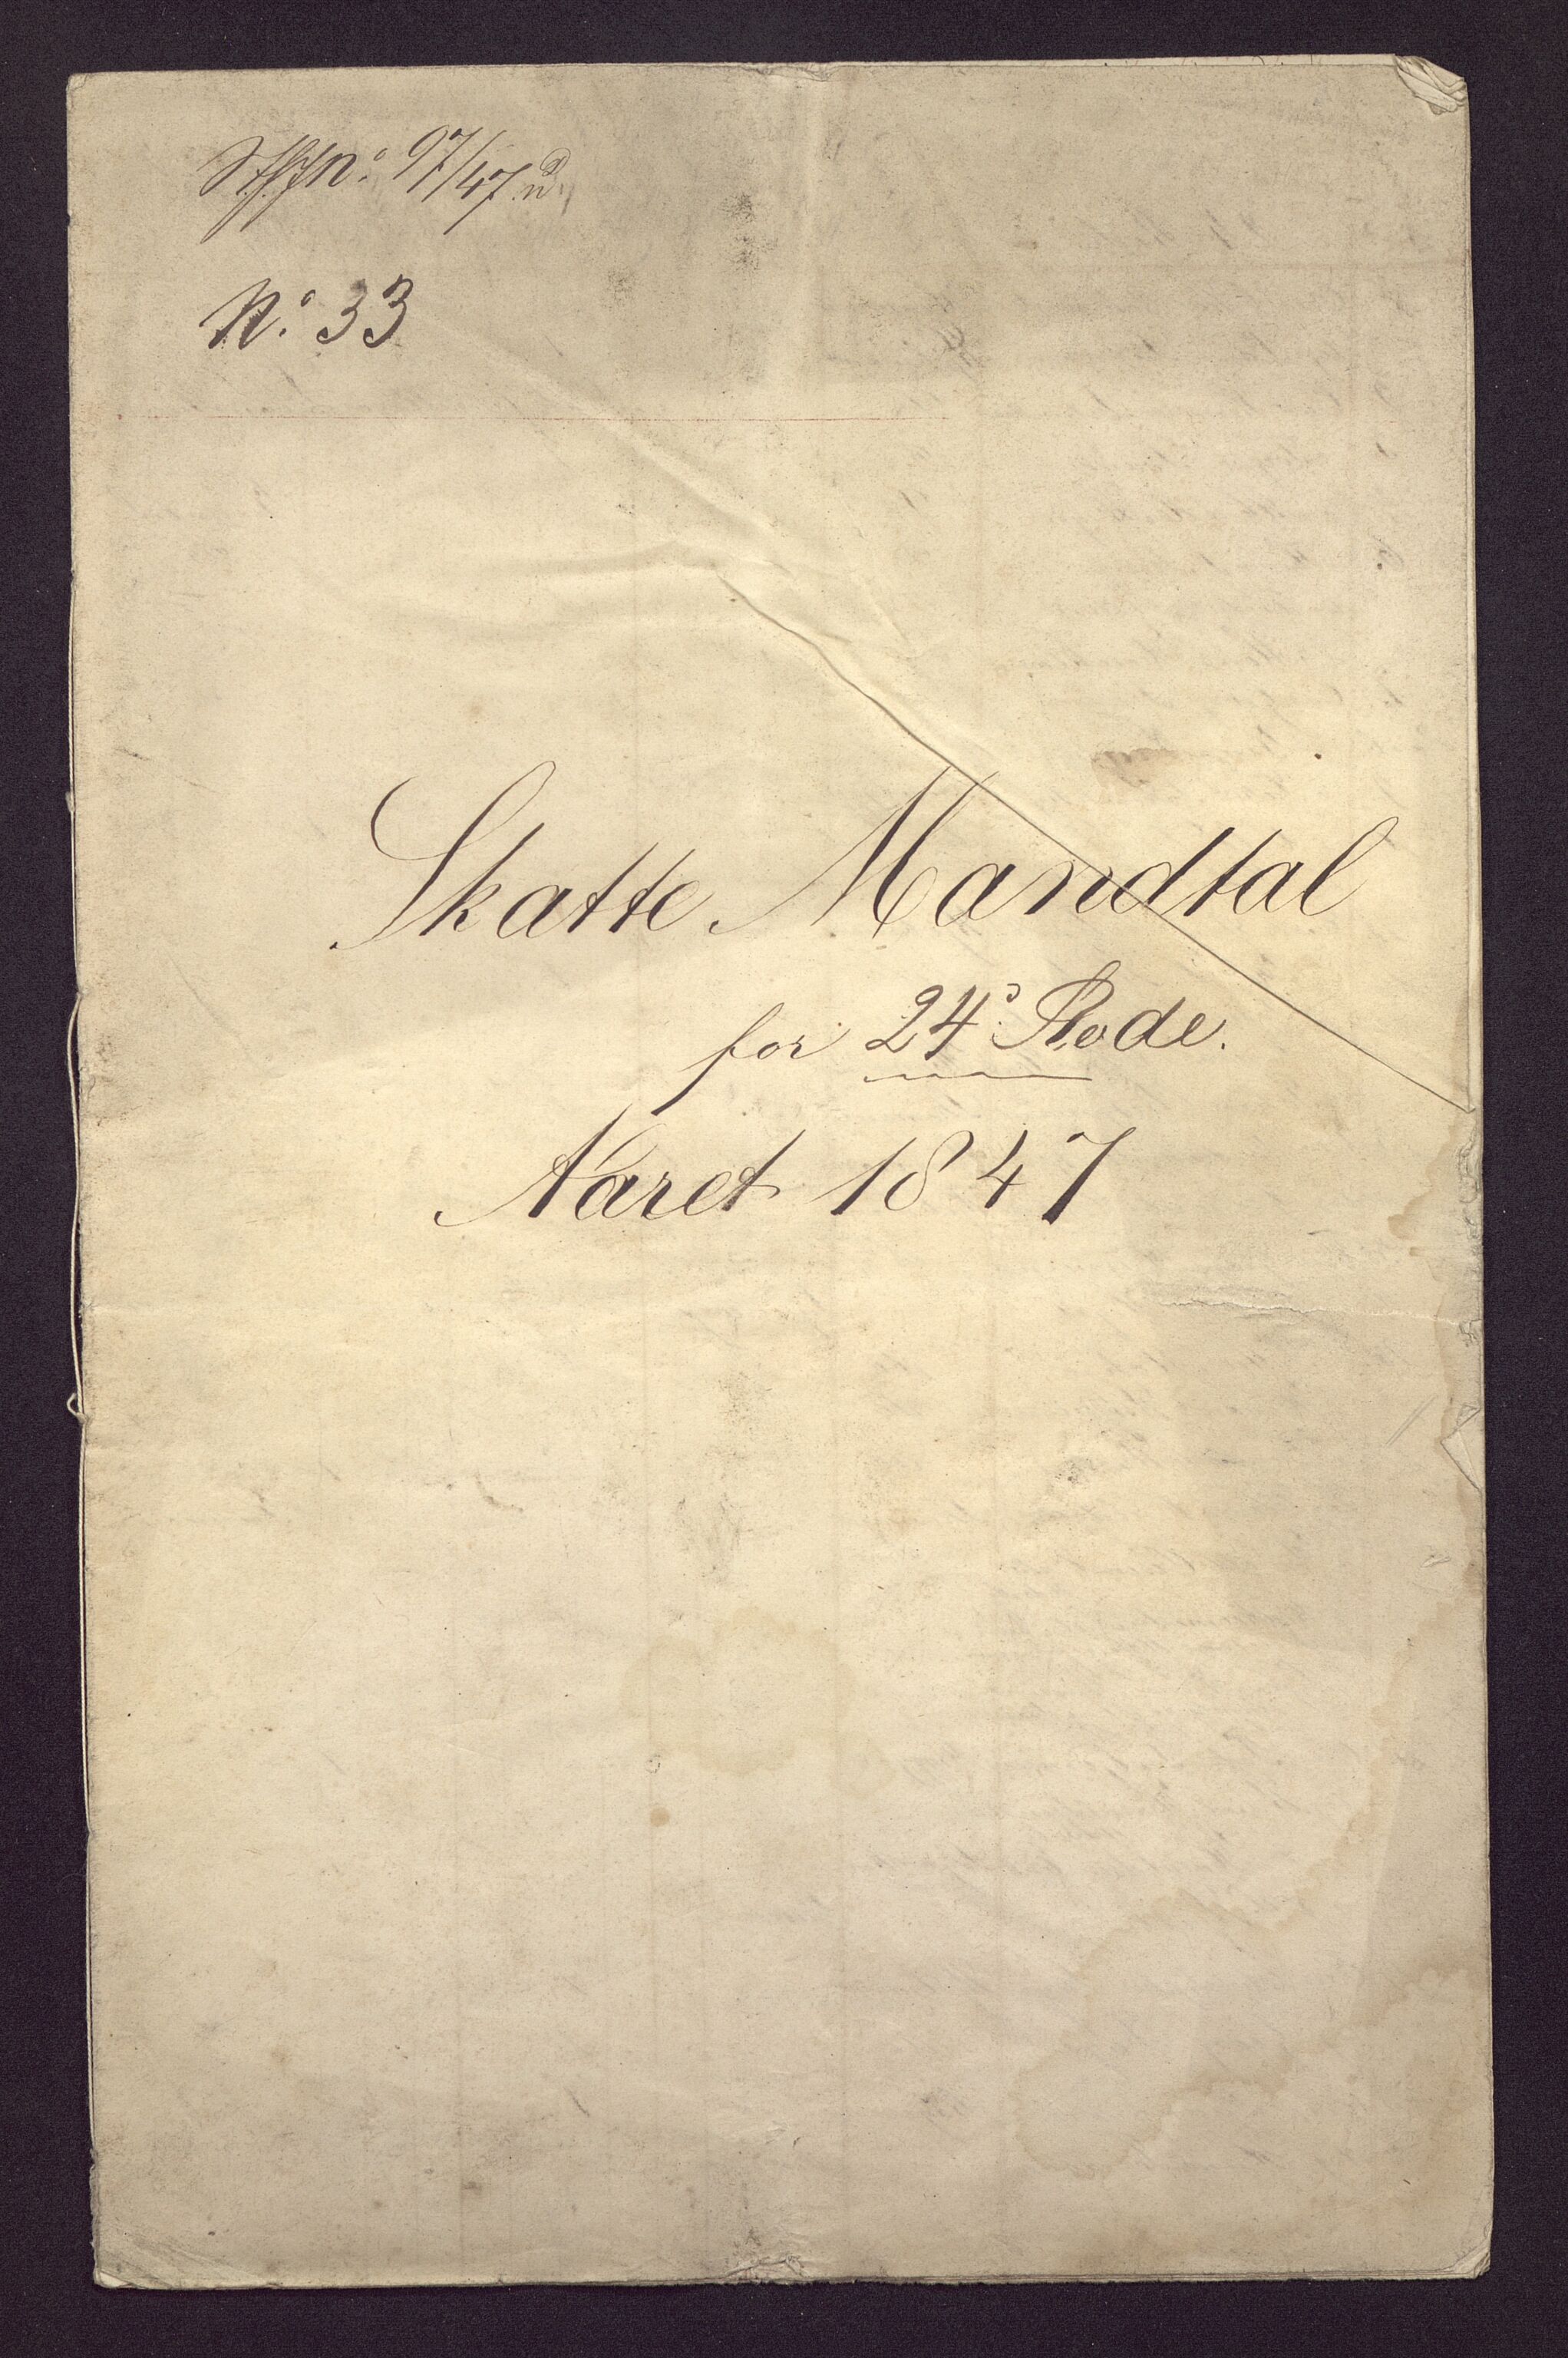 No. 97/47
No. 33
Skatte Mandtal
for 24de Rode.
Aaret 1847